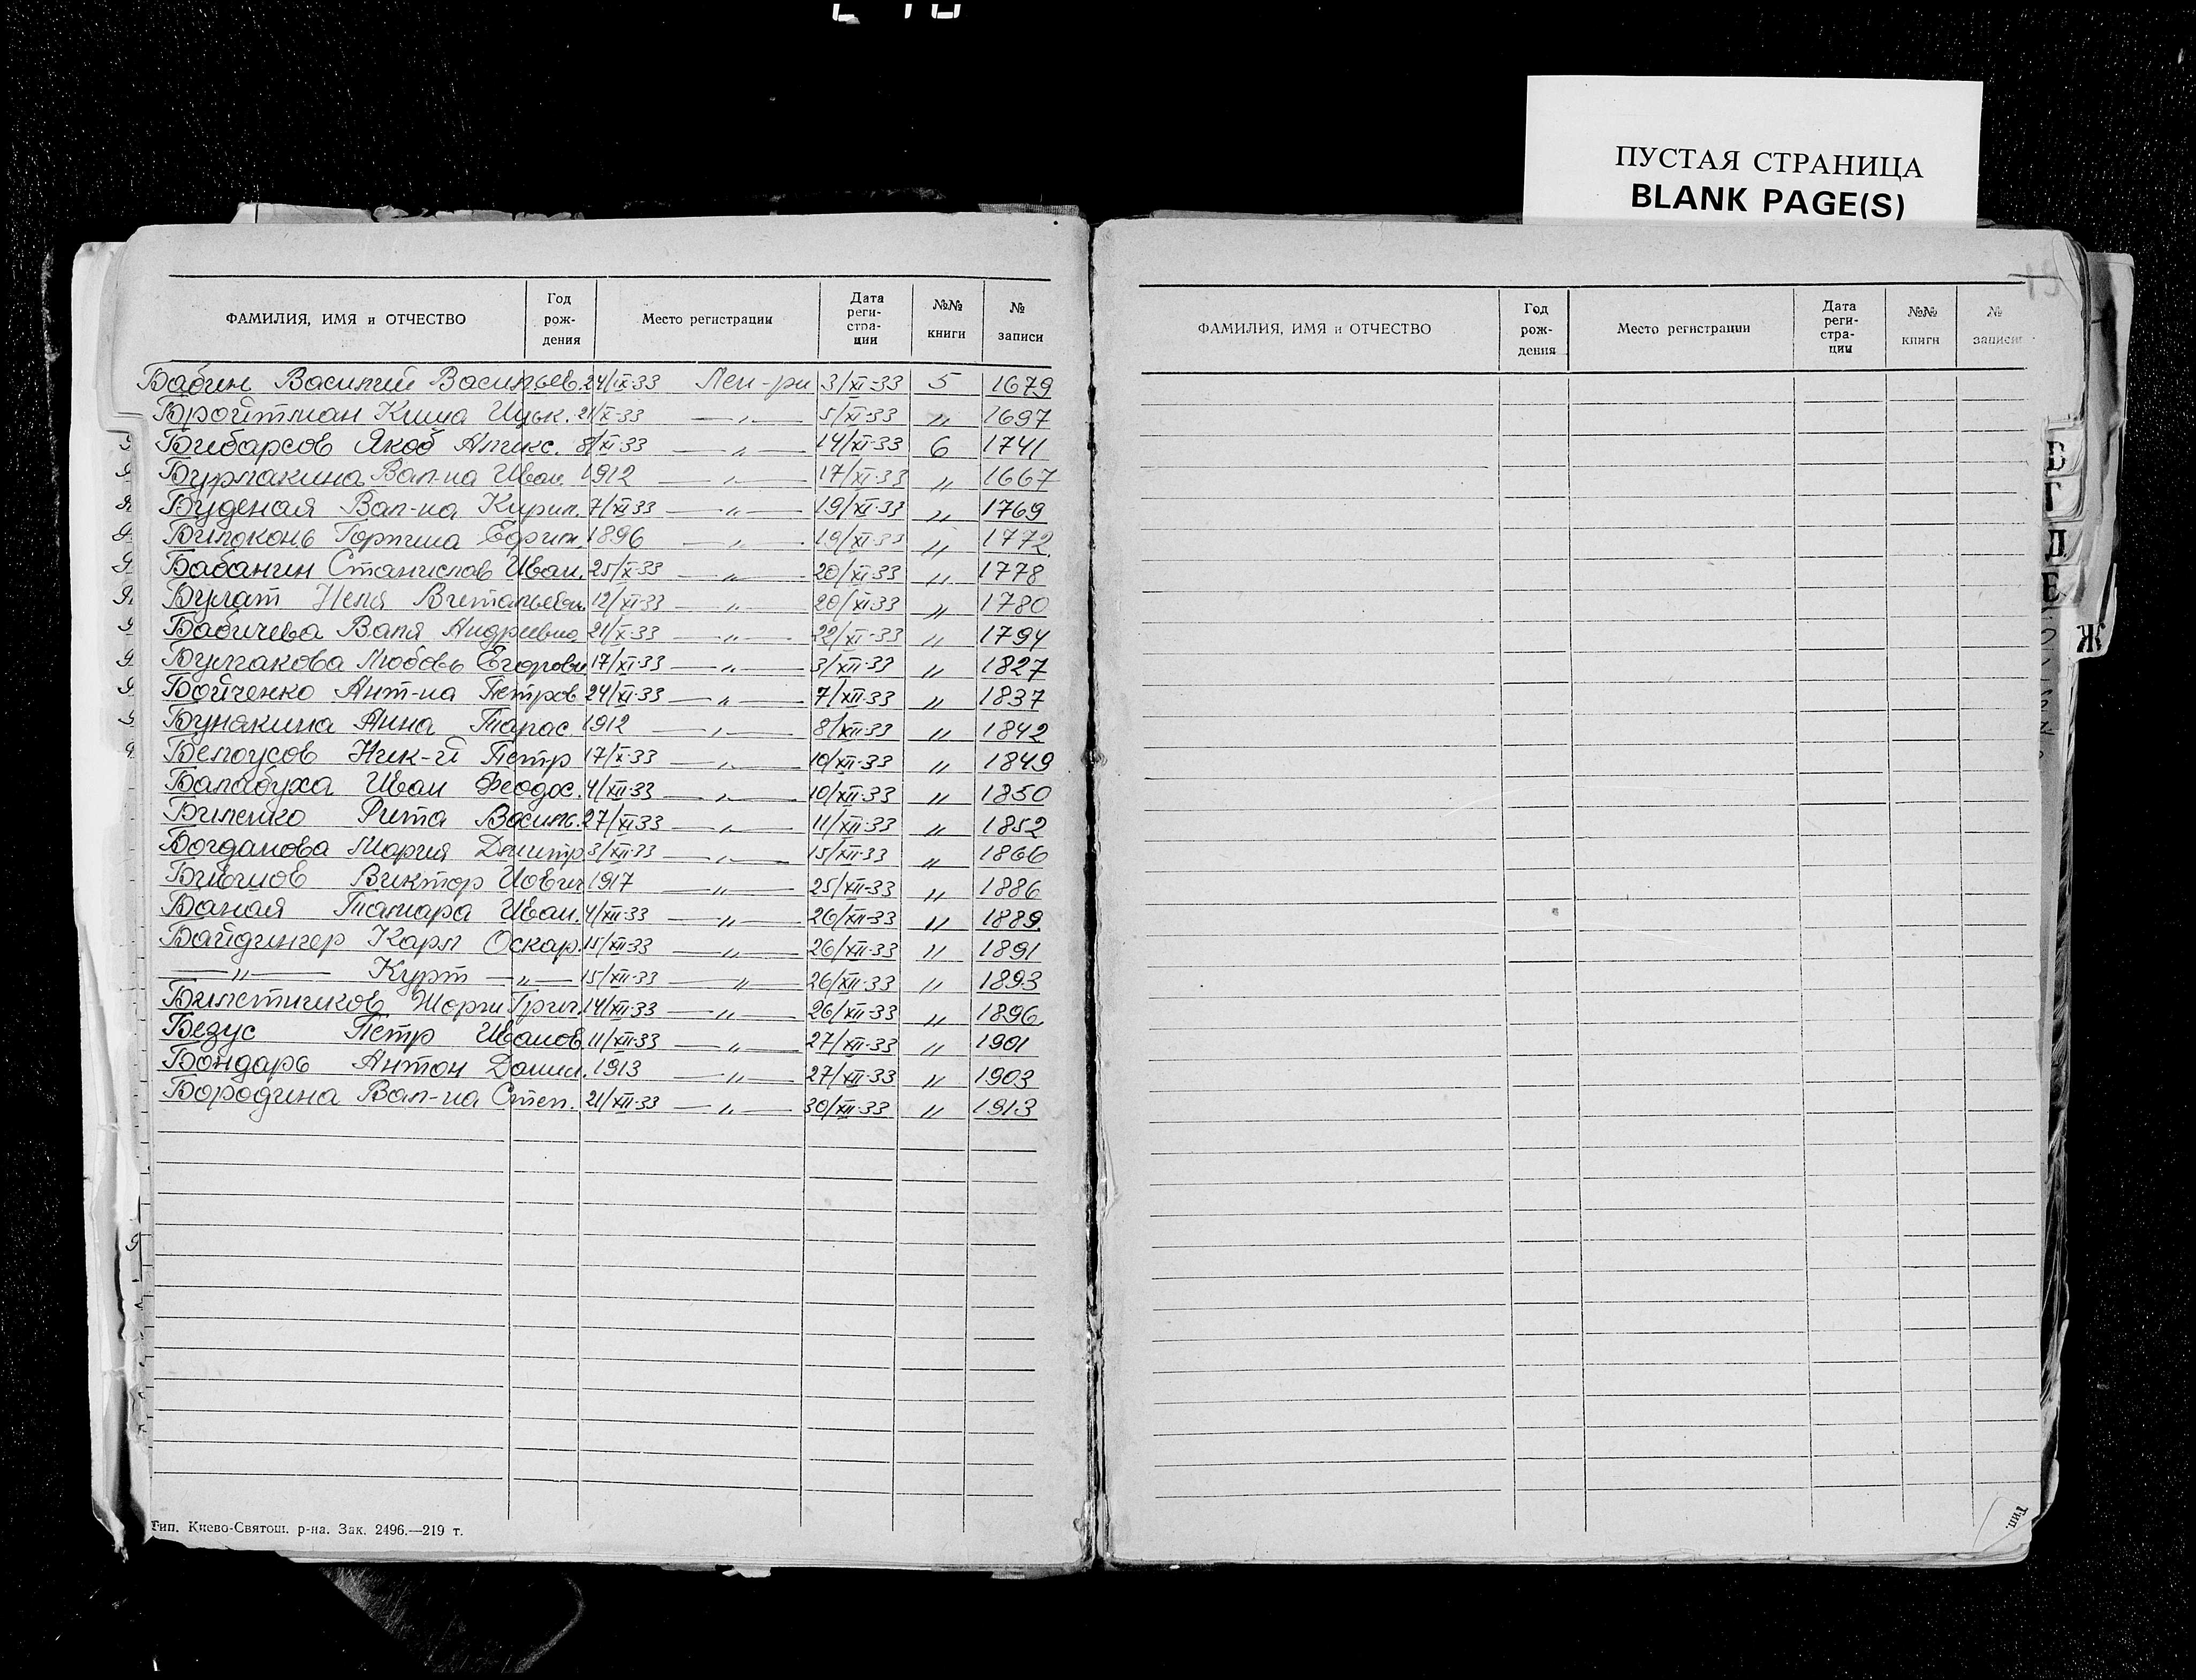 ПУСТАЯ СТРАНИЦА
BLANK PAGE(S)
ФАМИЛИЯ, ИМЯ и ОТЧЕСТВО Год рож- дения Место регистрации Дата реги- стра- ции №№ книги № записи
Бабин Василий Васильев. 24/IX-33 Лен-ри 3/XI-33 5 1679
Бройтман Киша Ицьк. 21/X-33 —„— 5/XI-33 „ 1697
Бибарсов Якоб Алекс. 8/XI-33 —„— 14/XI-33 6 1741
Бурлакина Вал-на Иван. 1912 —„— 17/XI-33 „ 1667
Буденая Вал-на Кирил. 7/XI-33 —„— 19/XI-33 „ 1769
Билоконь Горпина Ефрем. 1896 —„— 19/XI-33 „ 1772
Бабанин Станислав Иван. 25/X-33 —„— 20/XI-33 „ 1778
Булат Неля Витальевн. 12/XI-33 —„— 20/XI-33 „ 1780
Бабичева Валя Андреевна 21/X-33 —„— 22/XI-33 „ 1794
Булгакова Любовь Егоровн 17/XI-33 —„— 3/XII-33 „ 1827
Бойченко Ант-на Петров 24/XI-33 —„— 7/XII-33 „ 1837
Бунякина Анна Тарас 1912 —„— 8/XII-33 „ 1842
Белоусов Ник-й Петр 17/X-33 —„— 10/XII-33 „ 1849
Балабуха Иван Феодос. 4/XII-33 —„— 10/XII-33 „ 1850
Биленко Рита Василь. 27/XI-33 —„— 11/XII-33 „ 1852
Богданова Мария Дмитр 3/XII-33 —„— 15/XII-33 „ 1866
Виктор 1917 —„— 25/XII-33 „ 1886
Баная Тамара Иван. 4/XII-33 —„— 26/XII-33 „ 1889
Байдингер Карл Оскар. 15/XII-33 —„— 26/XII-33 „ 1891
—„— Курт —„— 15/XII-33 —„— 26/XII-33 „ 1893
Билетников Жорж Григ. 14/XII-33 —„— 26/XII-33 „ 1896
Безус Петр Иванов. 11/XII-33 —„— 27/XII-33 „ 1901
Бондарь Антон Данил. 1913 —„— 27/XII-33 „ 1903
Бородина Вал-на Степ. 21/XII-33 —„— 30/XII-33 „ 1913
Тип. Киево-Святош. р-на. Зак. 2496.—219 т.
ФАМИЛИЯ, ИМЯ и ОТЧЕСТВО Год рож- дения Место регистрации Дата реги- стра- ции №№ книги № записи
В
Г
Д
Е
Ж
Тип.